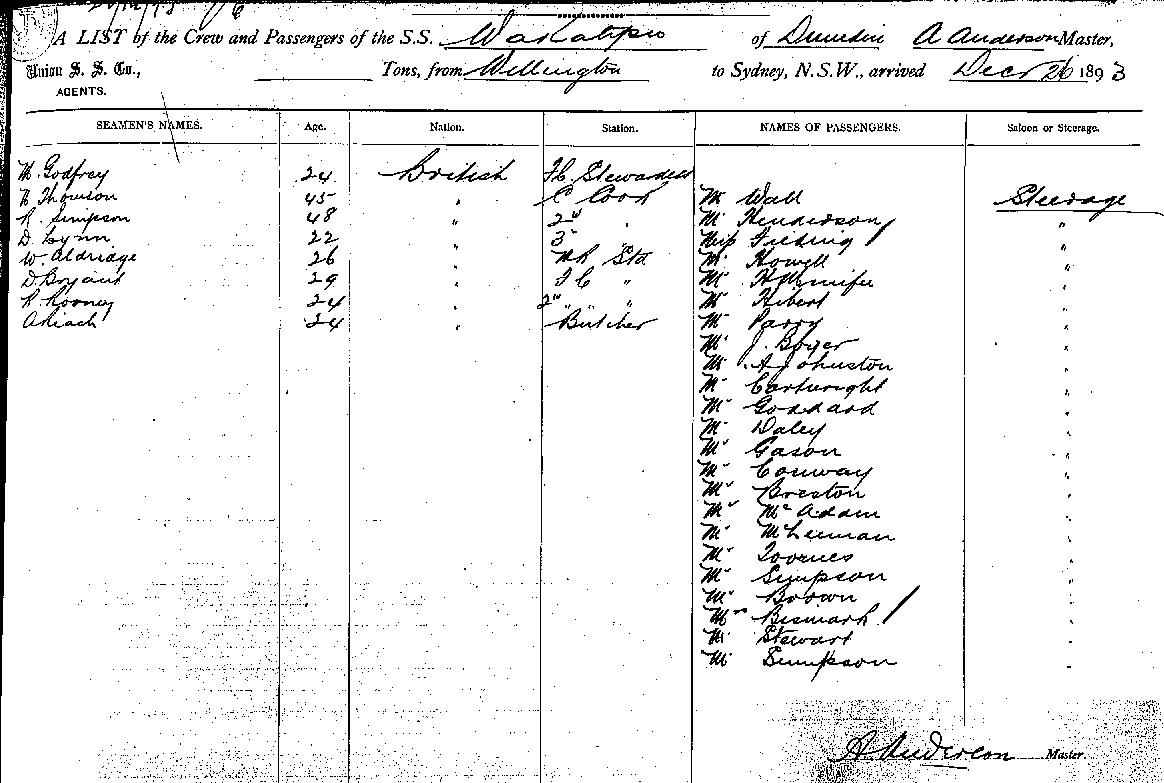 A LIST of the Crew and Passengers of the S.S. Wakatipu of Dunedin A Anderson Master,
Union S. S. Co., Tons, from Wellington to Sydney, N.S.W., arrived Decr 26 1893
AGENTS.
SEAMEN'S NAMES. Age. Nation. Station. NAMES OF PASSENGERS. Saloon or Steerage.
M. Godfrey 24 British F.C. Stewardess
Thomson 45 " C Cook Mr Wall Steerage
R. Simpson 48 " 2nd " Mr Henderson "
D. Lynn 22 " 3rd Miss Fielding "
W. Aldridge 26 " Std Mr Howell "
D Bryant 29 " F C " Mr "
R. Rooney 24 " 2nd " " Mr Hibert "
A Riach 24 " Butcher Mr Parry "
Mr J. Boyer "
Mr A Johnston "
Mr Cartwright "
Mr Goddard "
Mr Daley "
Mr Gason "
Mr Conway "
Mr Breston "
Mr McAdam "
Mr McLennan "
Mr "
Mr Simpson "
Mr Brown "
Mrs Bismark "
Mr Stewart "
Mr Simpson "
A. Anderson Master.